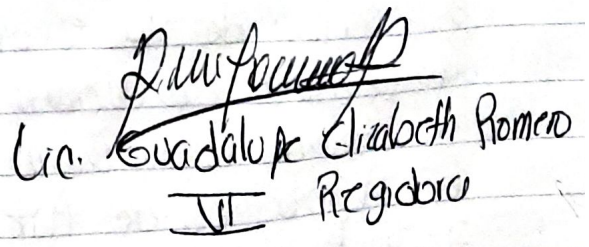 Lic. Guadalupe Elizabeth Romero
VI Regidora